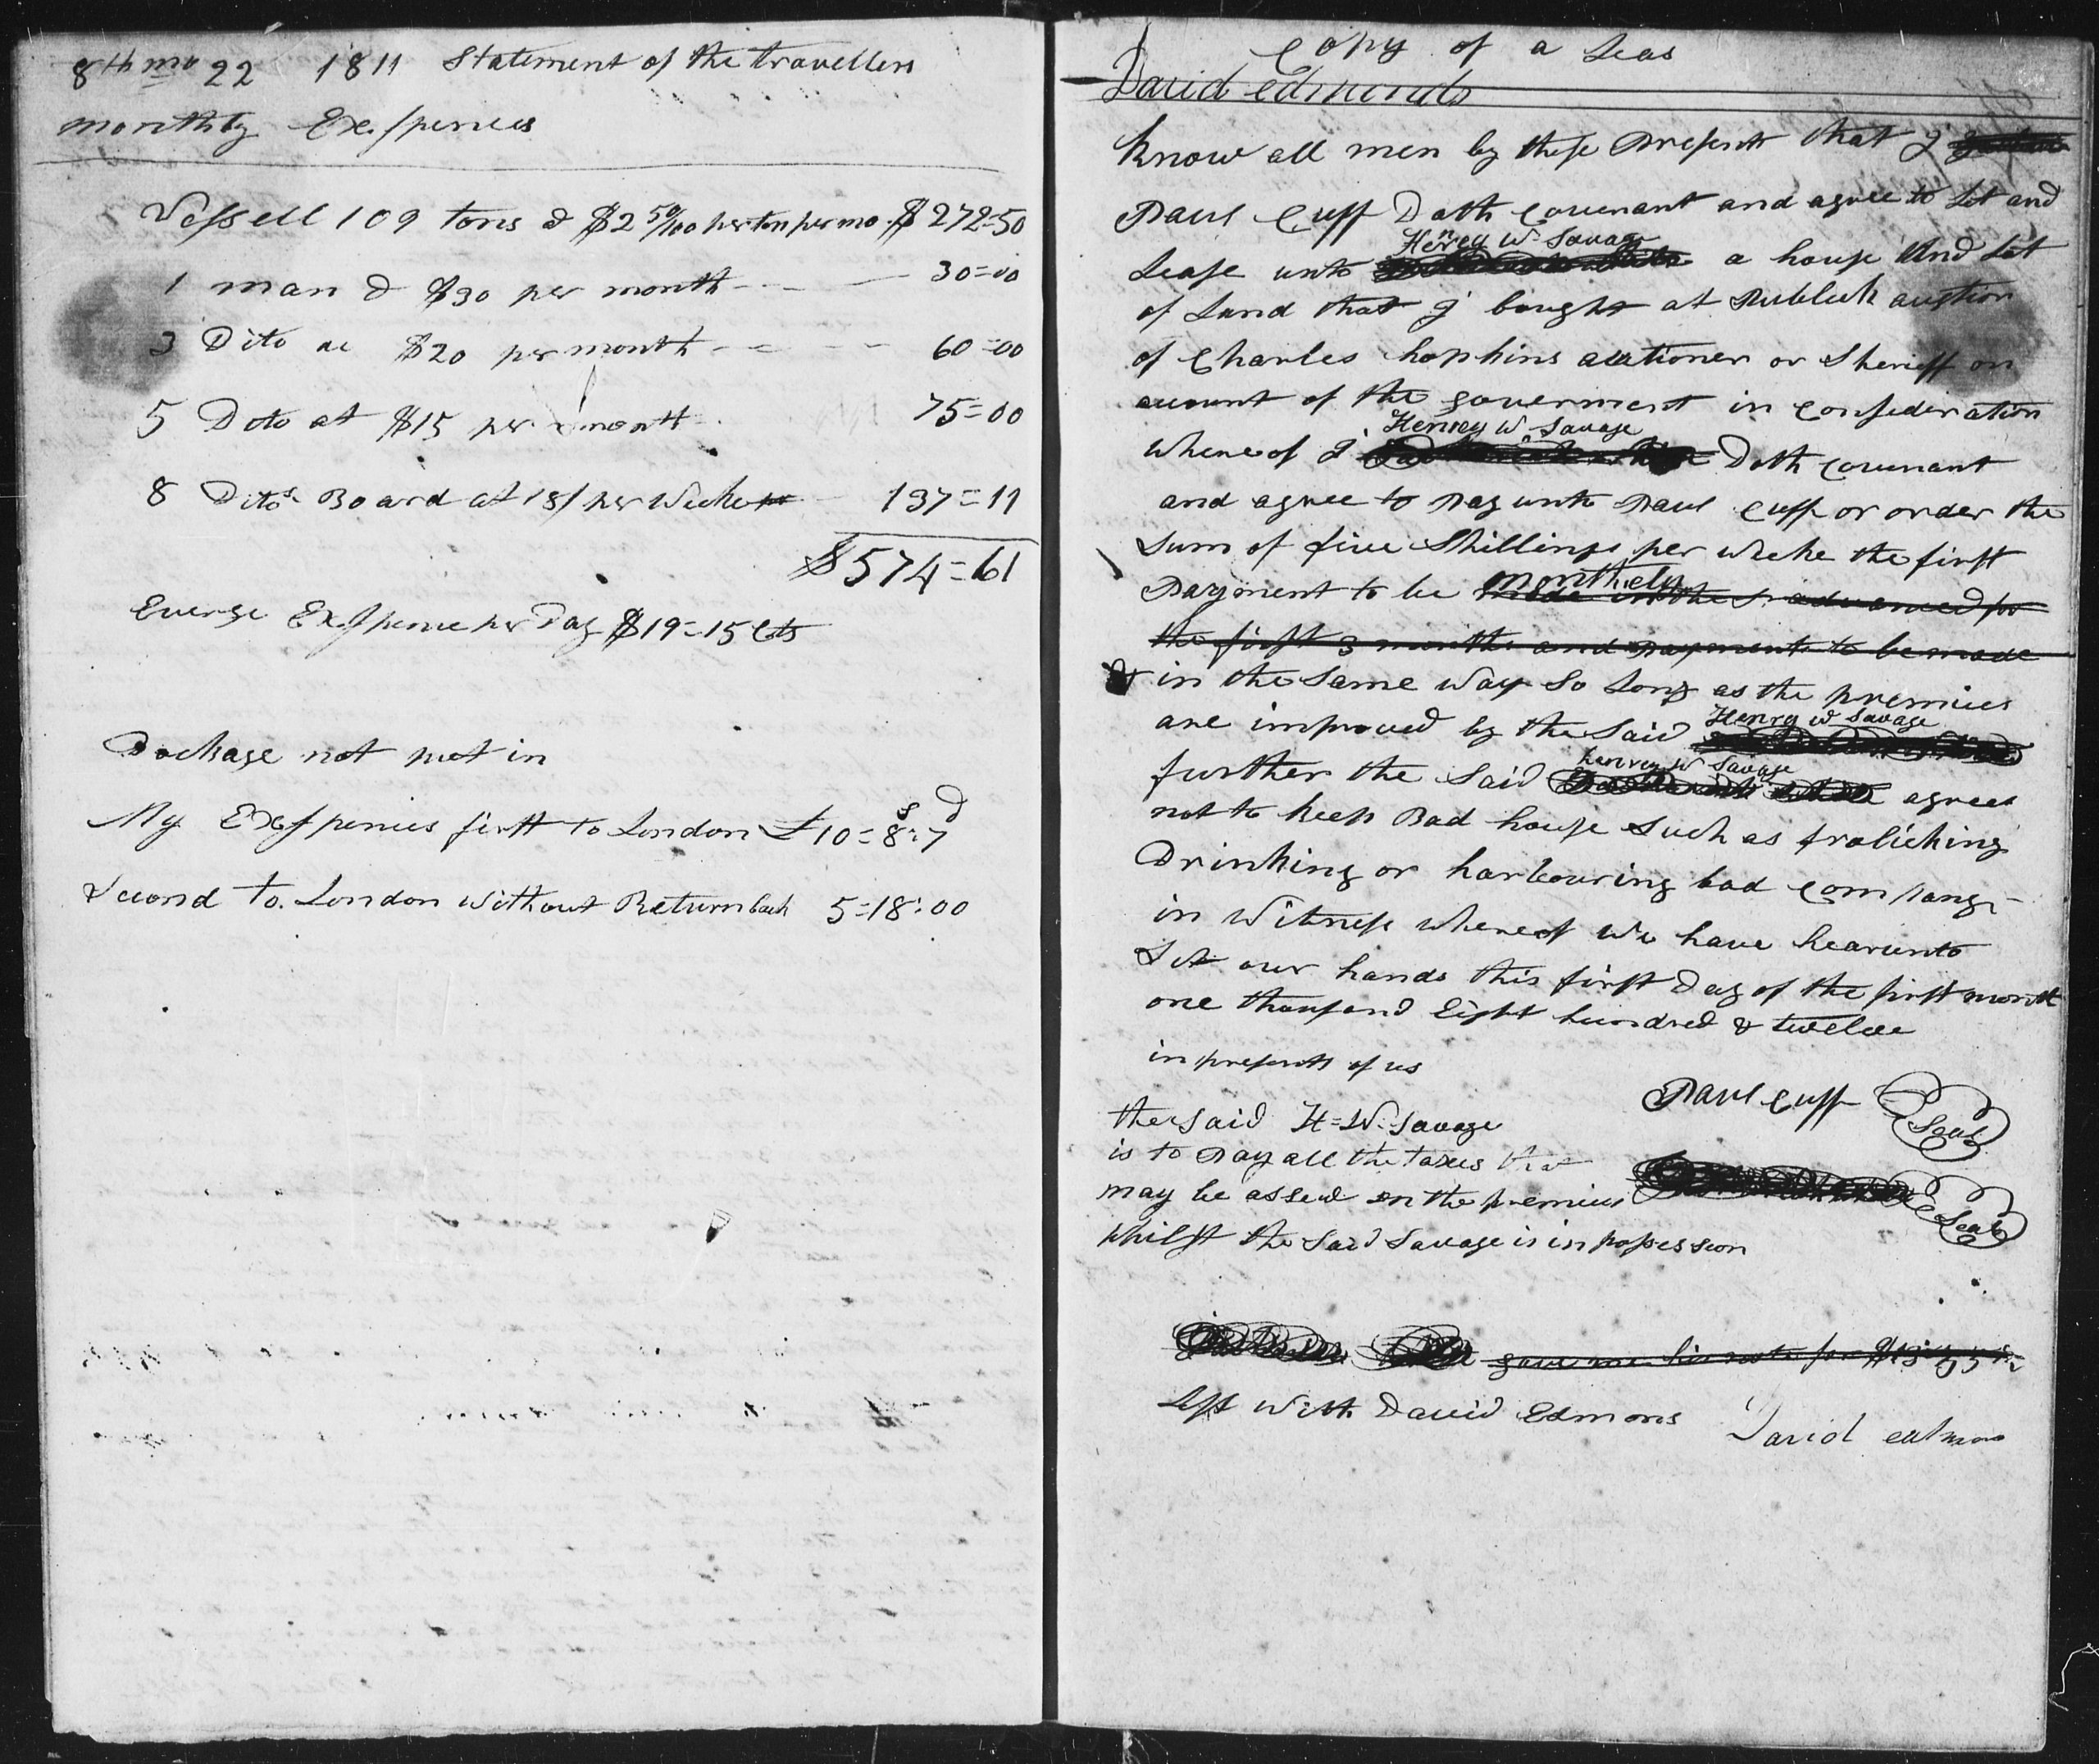 8th mo 22 1811 Statement of the travellers
monthly Expences
Vessell 109 tons a $2 50/100 per ton per mo. $272=50
1 man a $30 per month - - - 30=00
3 Dito at $20 per month - - - - 60=00
5 Dito at $15 per month 75=00
8 Ditos Board at 18/ per Weeke 137=11
$574=61
Everge Expence per Day $19=15 Cts
Dockage not put in
My Expences first to London £10=8s=7d
Second to London without Return back 5=18=00
Copy of a Leas
David edmonds
Know all men by these Presents that I
Paul Cuff Doth Covenant and agree to Let and
Henrey W. Savage
Lease unto a house And Lot
of Land that I bought at Publick auction
of Charles hopkins auctioner or Sheriff on
account of the goverment in Consideration
Henrey W. Savage
Whereof I Doth Covenant
and agree to Pay unto Paul Cuff or order the
Sum of five Shillings per Weeke the first
monthely
Payment to be made in the advanced for
the first 3 months and payments to be made
in the Same Way So Long as the premices
Henry W Savage
are improved by the Said
henrey W Savage
further the Said agrees
not to keep Bad house Such as frolicking
Drinking or harbouring bad Company
in Witness Whereof We have hearunto
Set our hands this first Day of the first month
one thousand Eight hundred & twelve
in presents of us
Paul Cuff Seal
the Said H=W. Savage
is to Pay all the taxes that
may be assed on the premices
Seal
Whilst the Said Savage is in possession
gave me his note for
Left With David Edmons David edmons